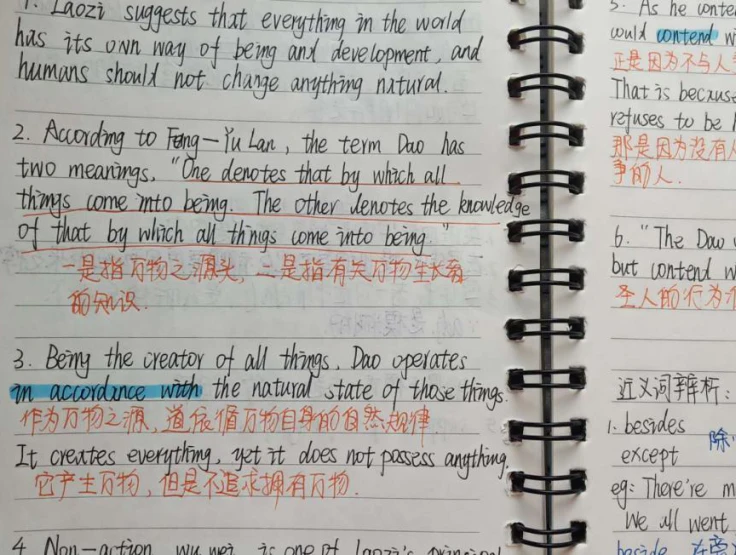 1. Laozi suggests that everything in the world
has its own way of being and development, and
humans should not change anything natural.
2. According to Fung-Yu Lan, the term Dao has
two meanings. "One denotes that by which all
things come into being. The other denotes the knowledge
of that by which all things come into being."
一是指万物之源头, 二是指有关万物生长着
的知识.
3. Being the creator of all things, Dao operates
in accordance with the natural state of those things.
作为万物之源, 道依循万物自身的自然规律
It creates everything, yet it does not possess anything.
它产生万物, 但是不追求拥有万物.
4. Non-action, wu wei, is one of Laozi's principal
5. As he
could contend
正是因为不与人
That is because
refuses to be
那是因为没有人
争的人.
6. "The Dao
but contend
圣人的行为
近义词辨析:
1. besides 除
except
eg: There're
We all went
beside